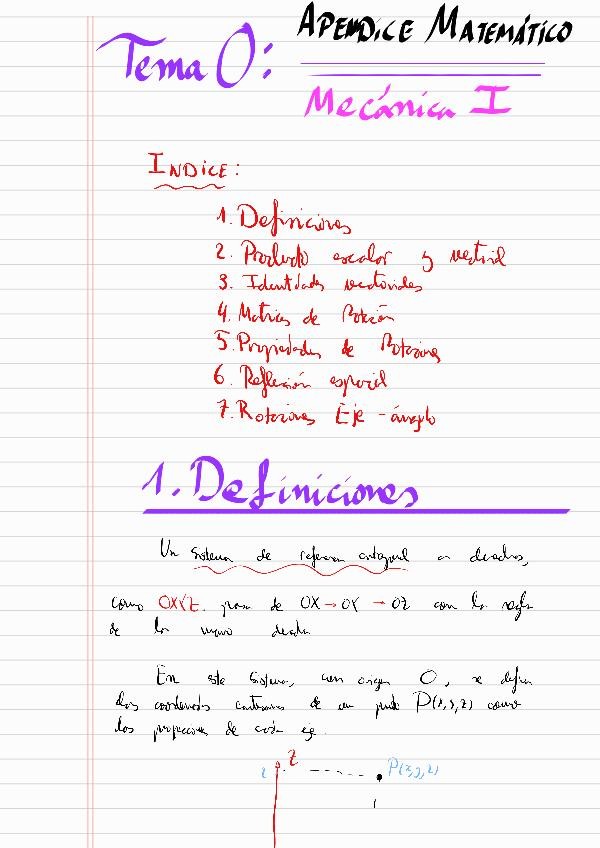 Tema 0: APENDICE MATEMÁTICO
Mecánica I
INDICE:
1. Definiciones
2. Producto escalar y vectorial
3. Identidades vectoriales
4. Matrices de Rotación
5. Propiedades de Rotaciones
6. Reflexión espacial
7. Rotaciones Eje-ángulo
1. Definiciones
Un sistema de referencia ortogonal a derechas,
como OXYZ. pasa de OX → OY → OZ con la regla
de la mano derecha
En este sistema, con origen O, se definen
las coordenadas cartesianas de un punto P(x,y,z) como
las proyecciones de cada eje.
z Z P(x,y,z)